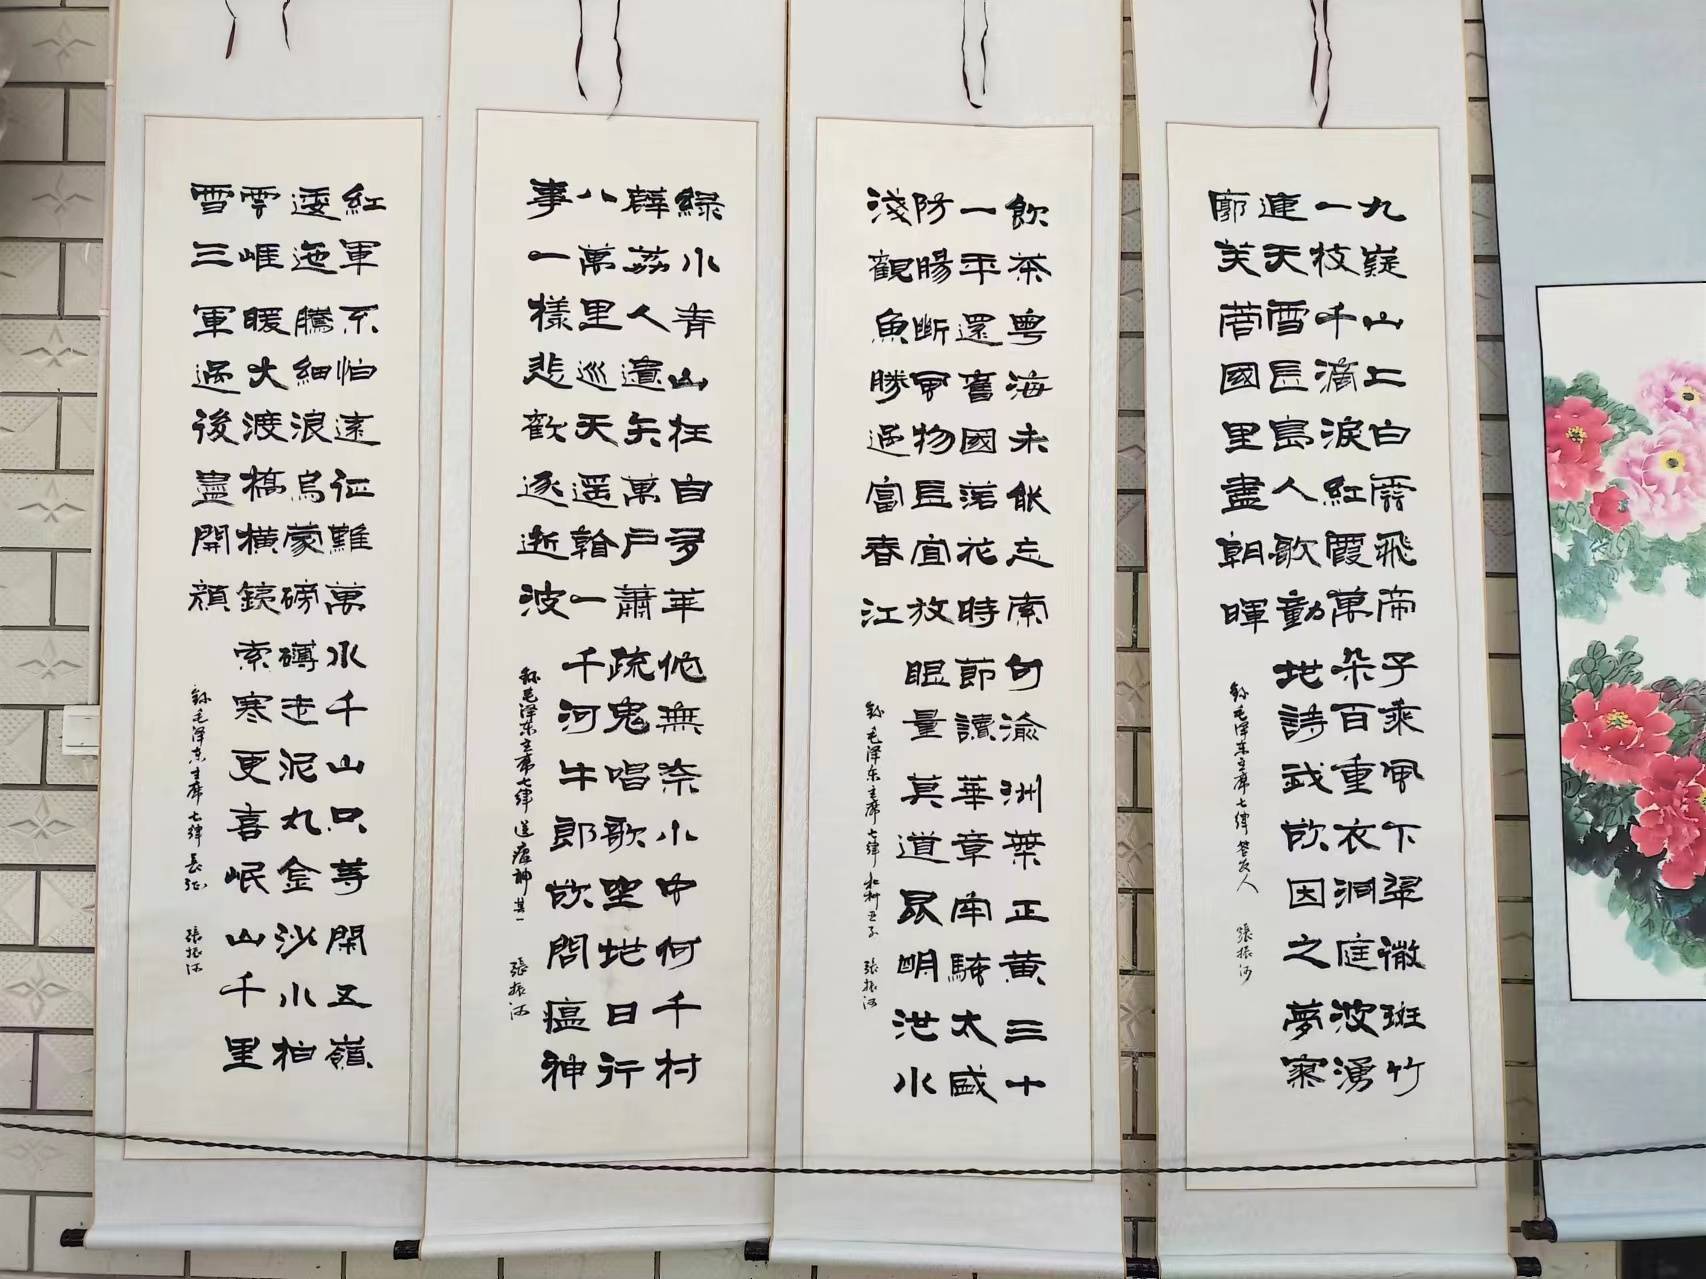 九嶷山上白雲飛帝子乘風下翠微斑竹
一枝千滴淚紅霞萬朵百重衣洞庭波湧
連天雪長島人歌動地詩我欲因之夢寥
廓芙蓉國里盡朝暉
錄毛泽东主席七律答友人 張振河
飲茶粵海未能忘索句渝洲葉正黃三十
一年還舊國落花時節讀華章牢騷太盛
防腸斷風物長宜放眼量莫道昆明池水
淺觀魚勝過富春江
錄毛泽东主席七律和柳亞子 張振河
綠水青山枉自多華佗無奈小虫何千村
薜荔人遺矢萬戶蕭疏鬼唱歌坐地日行
八萬里巡天遥看一千河牛郎欲問瘟神
事一樣悲歡逐逝波
錄毛泽东主席七律送瘟神其一 張振河
紅軍不怕遠征難萬水千山只等閑五嶺
逶迤騰細浪烏蒙磅礴走泥丸金沙水拍
雲崖暖大渡橋橫鐵索寒更喜岷山千里
雪三軍過後盡開顏
錄毛泽东主席七律長征 張振河